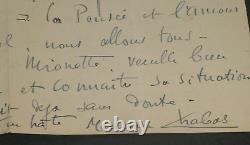 la Pensée et l'amour
nous allons tous -
Mionette, veuille bien
et connaitre sa situation
déjà sans doute -
hâte
Chabas